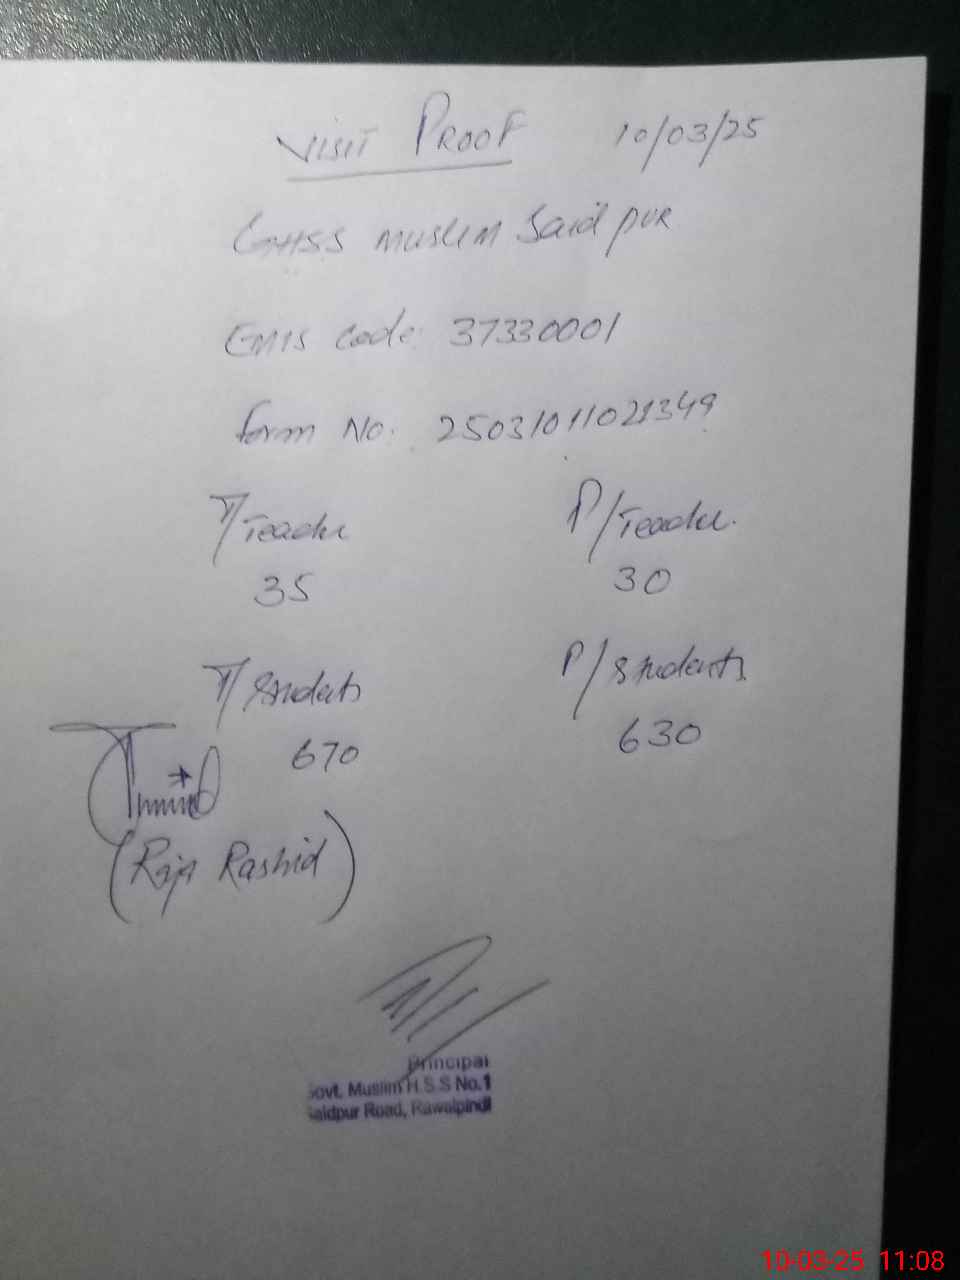 VISIT PROOF 10/03/25
GHSS MUSLIM Said pur
EMIS Code: 37330001
Form No. 25031011021349
T/Teacher P/Teacher.
35 30
T/Students P/Students
670 630
(Raja Rashid)
Principal
Govt. Muslim H.S.S No.1
Saidpur Road, Rawalpindi
10-03-25 11:08